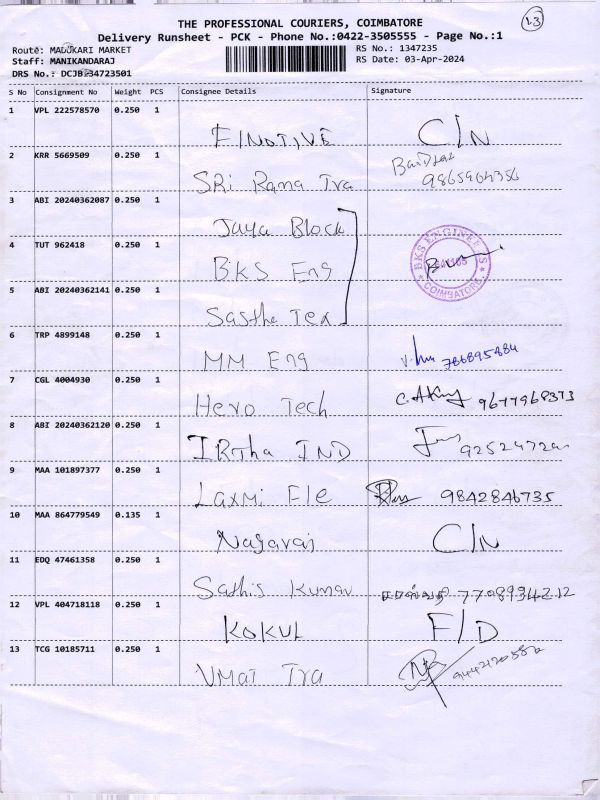 13
THE PROFESSIONAL COURIERS, COIMBATORE
Delivery Runsheet - PCK - Phone No.:0422-3505555 - Page No.:1
Route: MADUKARI MARKET
RS No.: 1347235
Staff: MANIKANDARAJ
RS Date: 03-Apr-2024
DRS No.: DCJB:34723501
S No Consignment No Weight PCS Consignee Details Signature
1 VPL 222578570 0.250 1
FINOTIVE C/N
2 KRR 5669509 0.250 1
SRi Rama Tra
3 ABI 20240362087 0.250 1
Jaya Block
4 TUT 962418 0.250 1
BKS Eng BKS ENGINEERS COIMBATORE
5 ABI 20240362141 0.250 1
Sastha Tex
6 TRP 4899148 0.250 1
MM Eng
7 CGL 4004930 0.250 1
Hero Tech 9677968373
8 ABI 20240362120 0.250 1
IRTha IND
9 MAA 101897377 0.250 1
Laxmi Ele 9842846735
10 MAA 864779549 0.135 1
Nagaraj C/N
11 EDQ 47461358 0.250 1
Sathis Kumar 7708934212
12 VPL 404718118 0.250 1
KOKUL F/D
13 TCG 10185711 0.250 1
UMai Tra